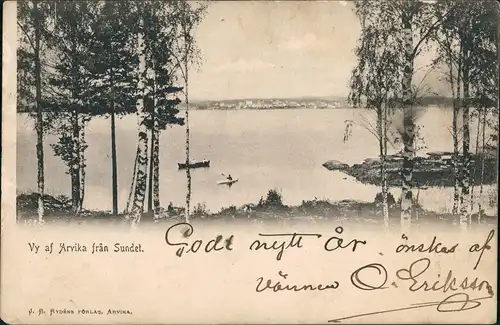 Vy af Arvika från Sundet.
Godt nytt år önskas af
vännen O. Eriksson
J. A. RYDÉNS FÖRLAG. ARVIKA.